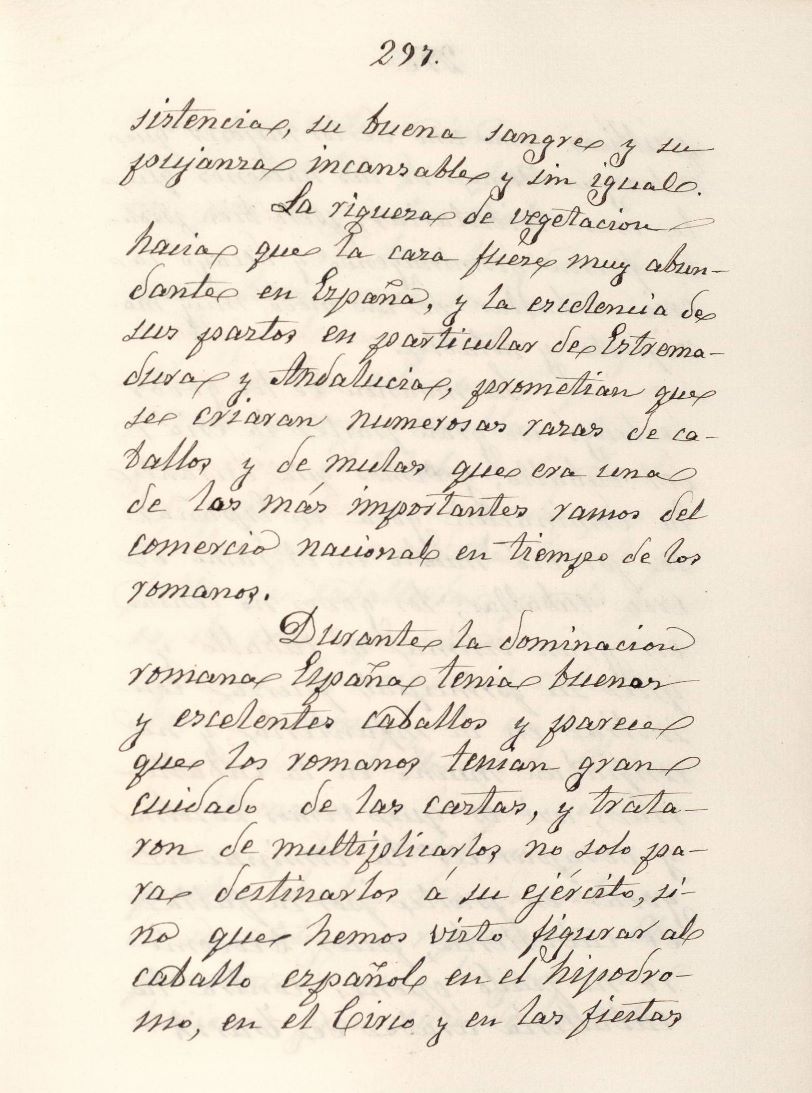 297.
sistencia, su buena sangre y su
pujanza incansable y sin igual.
La riqueza de vegetacion
hacia que la caza fuese muy abun-
dante en España, y la escelencia de
sus pastos en particular de Estrema-
dura y Andalucia, prometian que
se criaran numerosas razas de ca-
ballos y de mulas que era una
de las más importantes ramos del
comercio nacional en tiempo de los
romanos.
Durante la dominacion
romana España tenia buenos
y escelentes caballos y parece
que los romanos tenian gran
cuidado de las castas, y trata-
ron de multiplicarlos no solo pa-
ra destinarlos á su ejército, si-
no que hemos visto figurar al
caballo español en el hipodro-
mo, en el Circo y en las fiestas